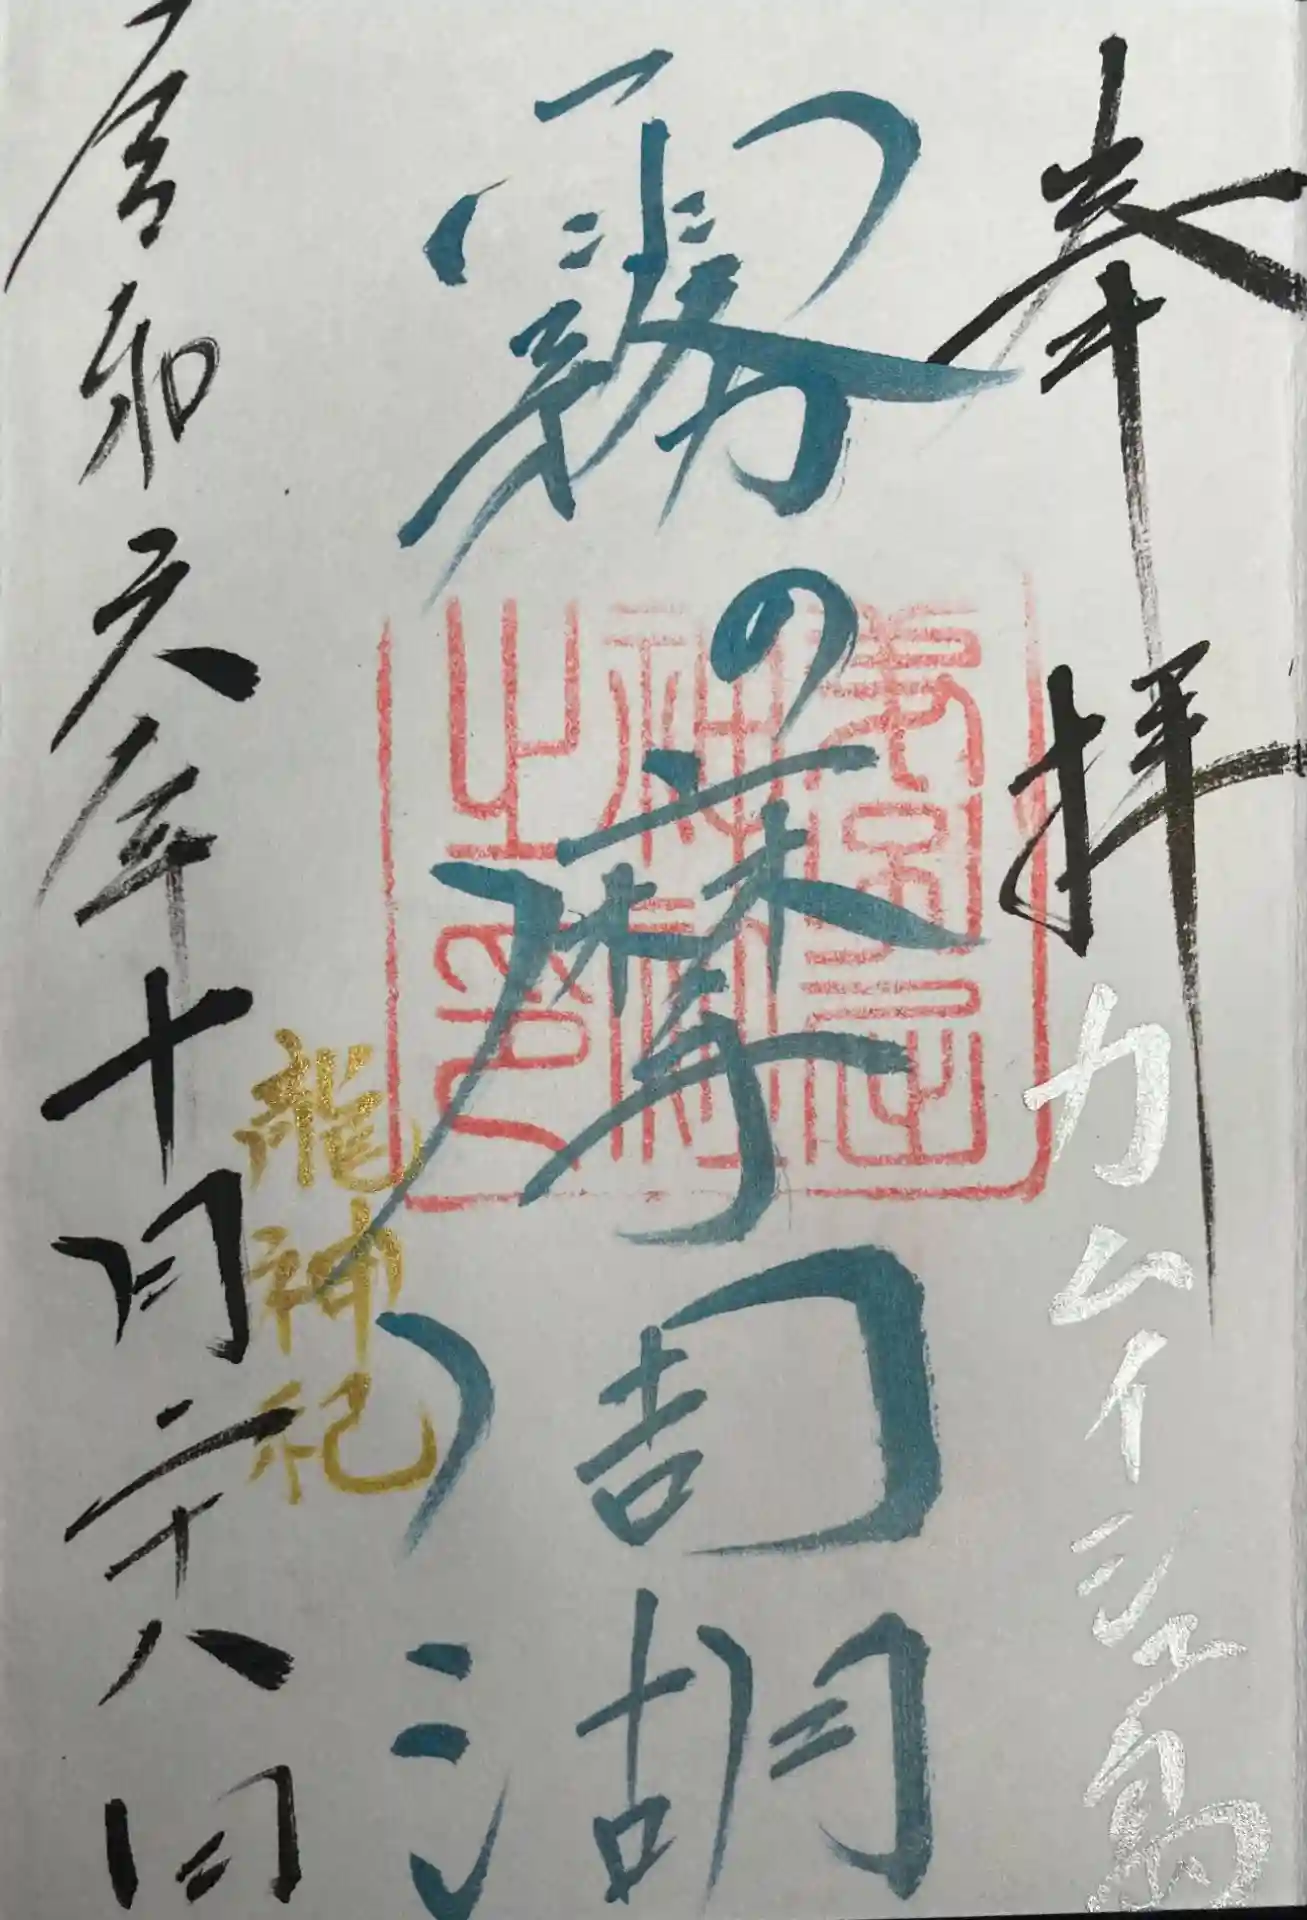 奉拝
カムイシュ島
霧の摩周湖
弟子屈
神社
之印
龍神祀
令和六年十月二十八日